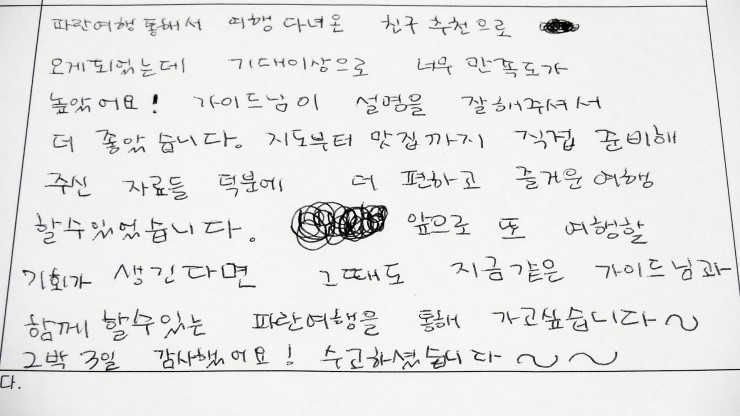 파란여행 통해서 여행 다녀온 친구 추천으로
오게되었는데 기대이상으로 너무 만족도가
높았어요! 가이드님이 설명을 잘해주셔서
더 좋았습니다. 지도부터 맛집까지 직접 준비해
주신 자료들 덕분에 더 편하고 즐거운 여행
할수있었습니다. 앞으로 또 여행할
기회가 생긴다면 그때도 지금같은 가이드님과
함께 할수있는 파란여행을 통해 가고싶습니다~
2박 3일 감사했어요! 수고하셨습니다~~
다.